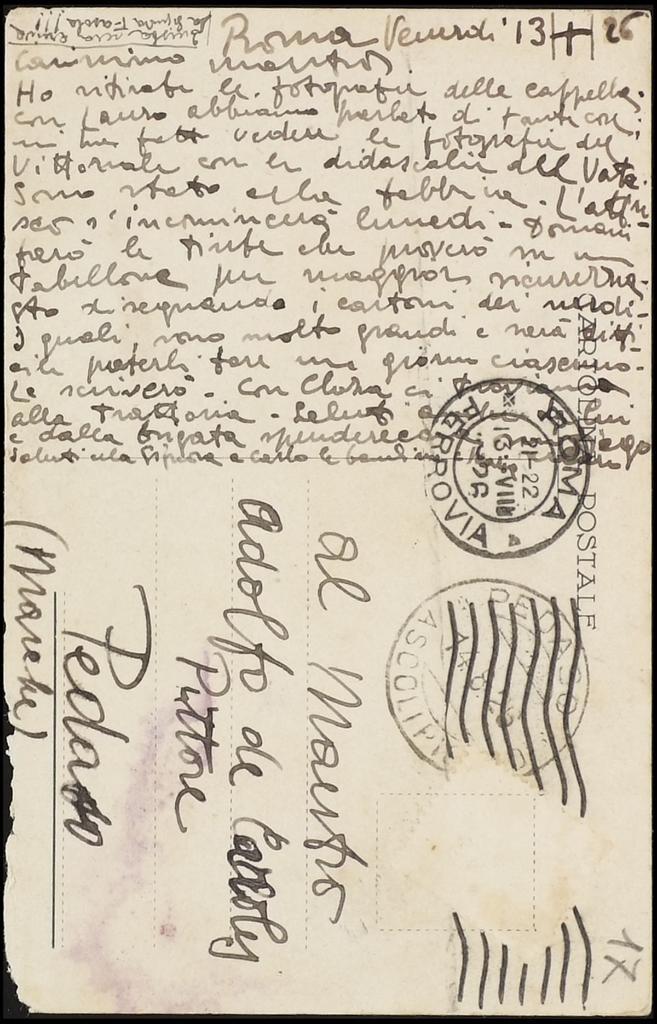 Questa sera arriva
la Signora Fasola!!!
Roma Venerdi' 13 26
Carissimo maestro
Ho ritirate le fotografie delle cappella.
con Lauro abbiamo parlato di tante cose,
mi ha fatt vedere le fotografie del
Vittoriale con le didascalie del Vate.
Sono stato alla fabbrica. L'affre=
sco s'incomincerà lunedi - Domani
farò le tinte che proverò su un
tabellone per maggior sicurezza.
Sto disegnando i cartoni dei
i quali, sono molto grandi e sarà diffi=
cile poterli fare un giorno ciascuno.
Le scriverò. Con ci
alla trattoria - Saluti
e dalla brigata
Saluti alla Signora e
CARTOLINA POSTALE
ROMA FERROVIA
21-22
13 VIII
926
PEDASO
ASCOLI PI
Al Maestro
Adolfo de Carolis
Pittore
Pedaso
(Marche)
17